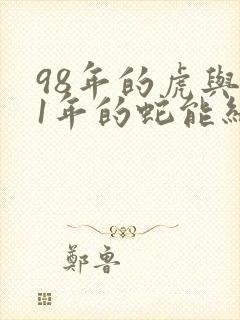 98年的虎與
1年的蛇能
鄭魯